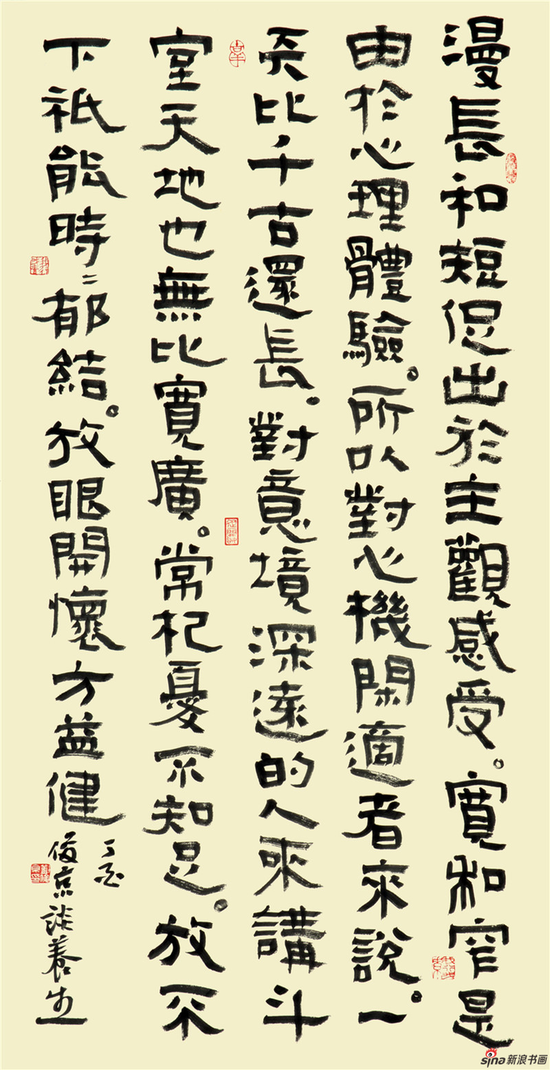 漫長和短促出於主觀感受。寬和窄是
由於心理體驗。所以對心機閑適者來說。一
天比千古還長。對意境深遠的人來講斗
室天地也無比寬廣。常杞憂不知足。放不
下祇能時〻郁結。放眼開懷方益健
丁酉
俊京談養生
sina新浪书画